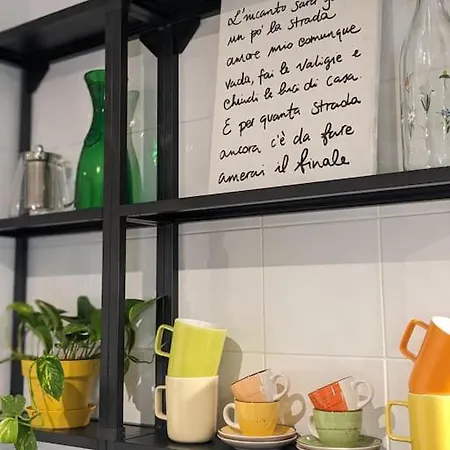 L'incanto sarà g
un po' la strada
amore mio comunque
vada, fai le valigie e
chiudi le luci di casa.
E per quanta strada
ancora c'è da fare
amerai il finale